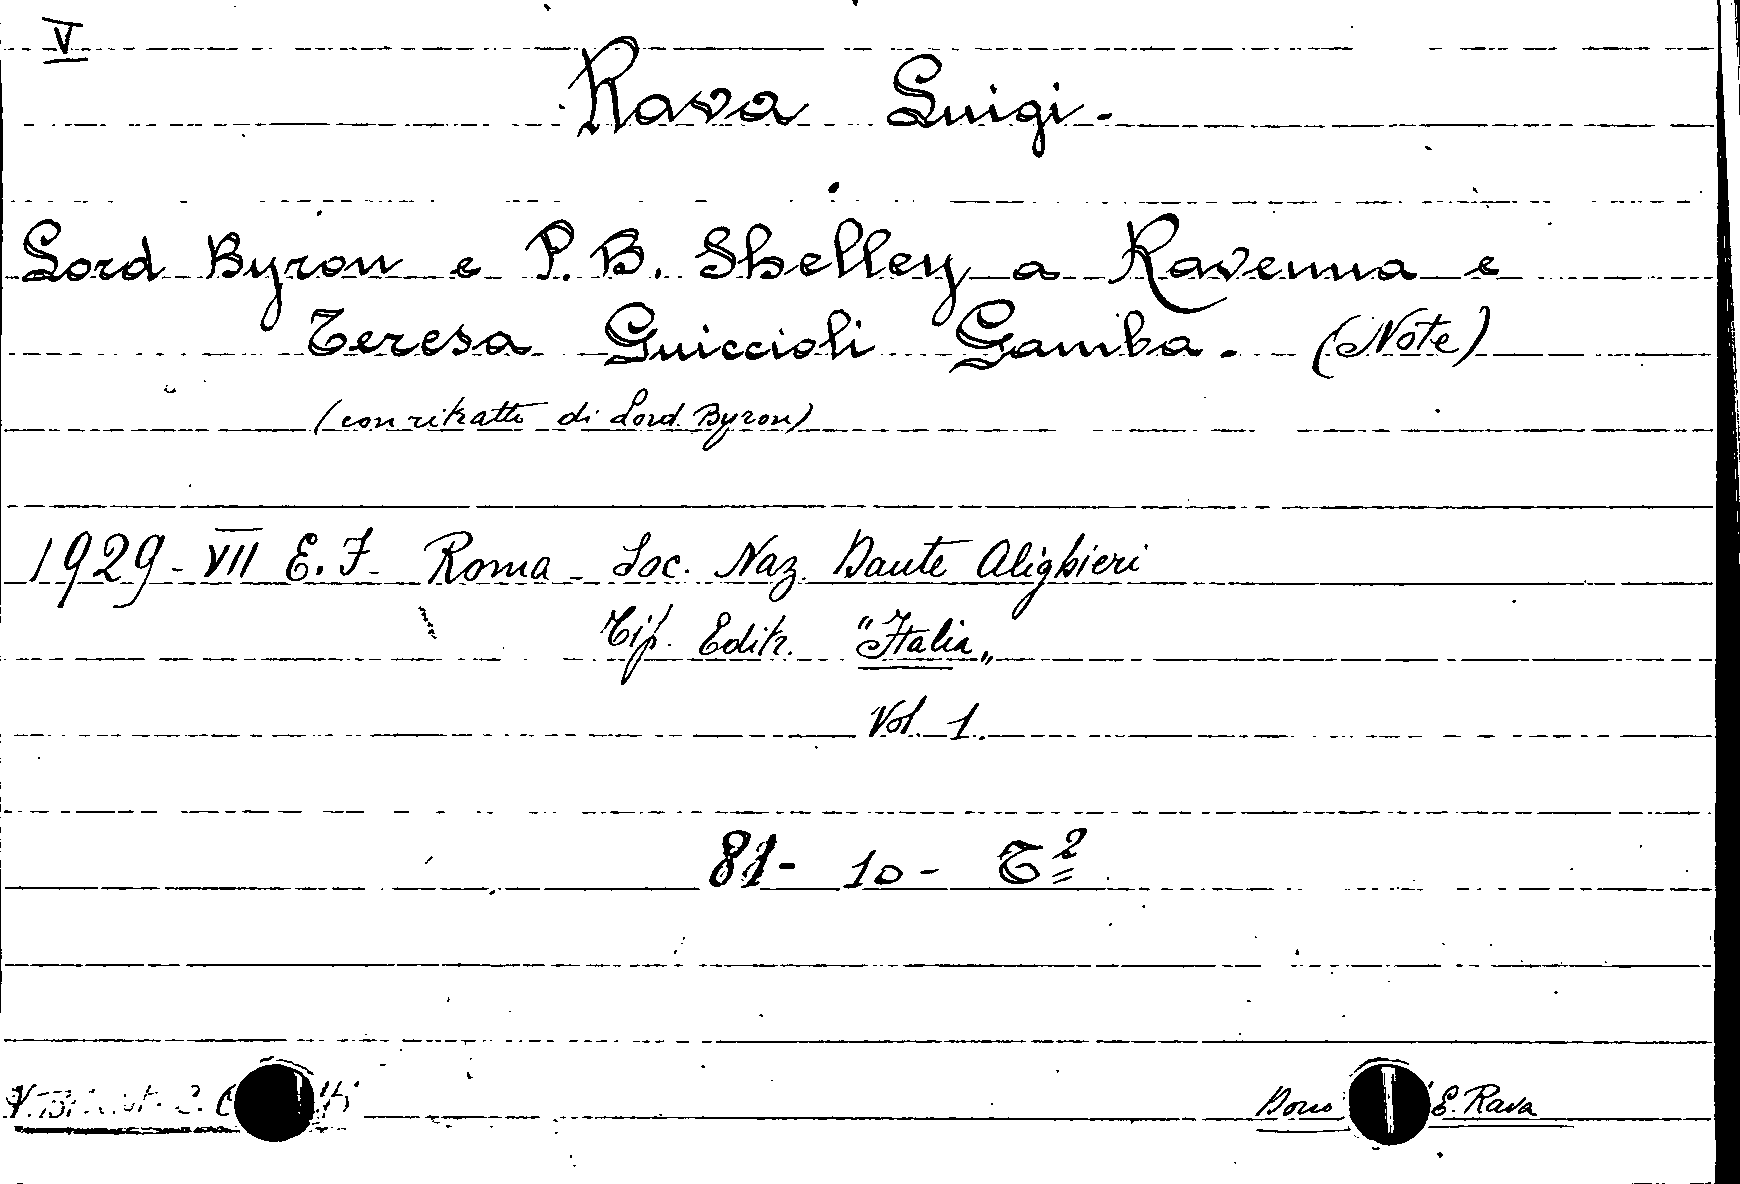 V
Rava Luigi.
Lord Byron e P. B. Shelley a Ravenna e
Teresa Guiccioli Gamba. (Note)
(con ritratto di Lord Byron)
1929 - VII E. F. Roma - Soc. Naz. Dante Alighieri
Tip. Editr. "Italia„
Vol. 1.
81 - 10 - T²
Dono E. Rava